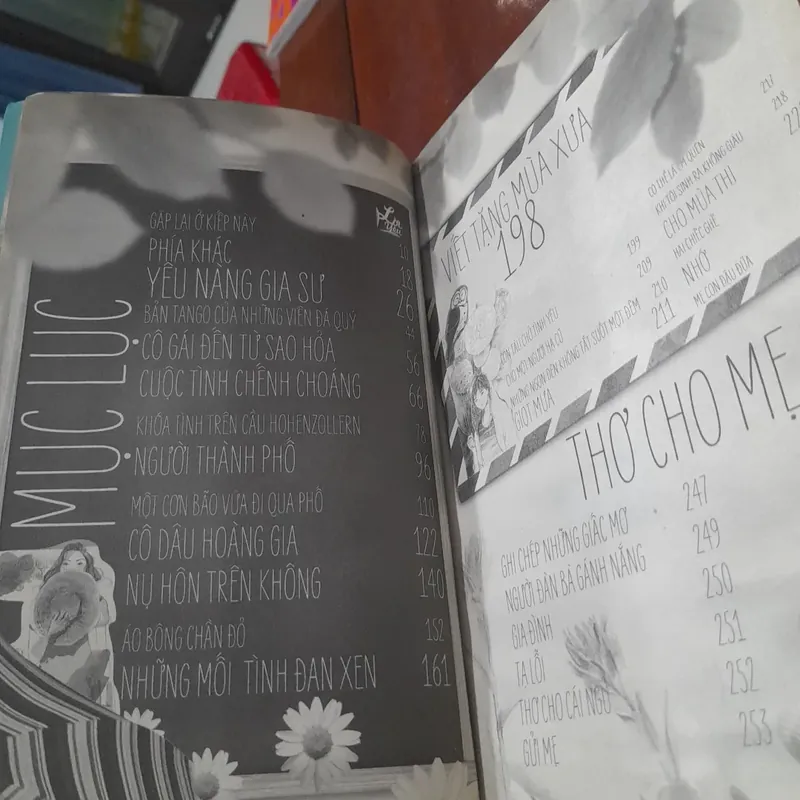 MỤC LỤC
GẶP LẠI Ở KIẾP NÀY 10
PHÍA KHÁC 18
YÊU NÀNG GIA SƯ 26
BẢN TANGO CỦA NHỮNG VIÊN ĐÁ QUÝ
CÔ GÁI ĐẾN TỪ SAO HỎA 56
CUỘC TÌNH CHẾNH CHOÁNG 66
KHÓA TÌNH TRÊN CẦU HOHENZOLLERN 78
NGƯỜI THÀNH PHỐ 96
MỘT CƠN BÃO VỪA ĐI QUA PHỐ 110
CÔ DÂU HOÀNG GIA 122
NỤ HÔN TRÊN KHÔNG 140
ÁO BÔNG CHẦN ĐỎ 152
NHỮNG MỐI TÌNH ĐAN XEN 161
VIẾT TẶNG MÙA XƯA
198
CÒN LẠI CHÚT TÌNH YÊU 199
CHO MỘT NGƯỜI HẠ CŨ 209
NHỮNG NGỌN ĐÈN KHÔNG TẮT SUỐT MỘT ĐÊM 210
GIỌT MƯA 211
CÓ THỂ LÀ EM QUÊN 217
KHI TÔI SINH RA KHÔNG GIÀU 218
CHO MÙA THI
HAI CHIẾC GHẾ
NHỚ
MẸ, CON DẦU DỪA
THƠ CHO MẸ
GHI CHÉP NHỮNG GIẤC MƠ 247
NGƯỜI ĐÀN BÀ GÁNH NẮNG 249
GIA ĐÌNH 250
TẠ LỖI 251
THƠ CHO CÁI NGỦ 252
GỬI MẸ 253